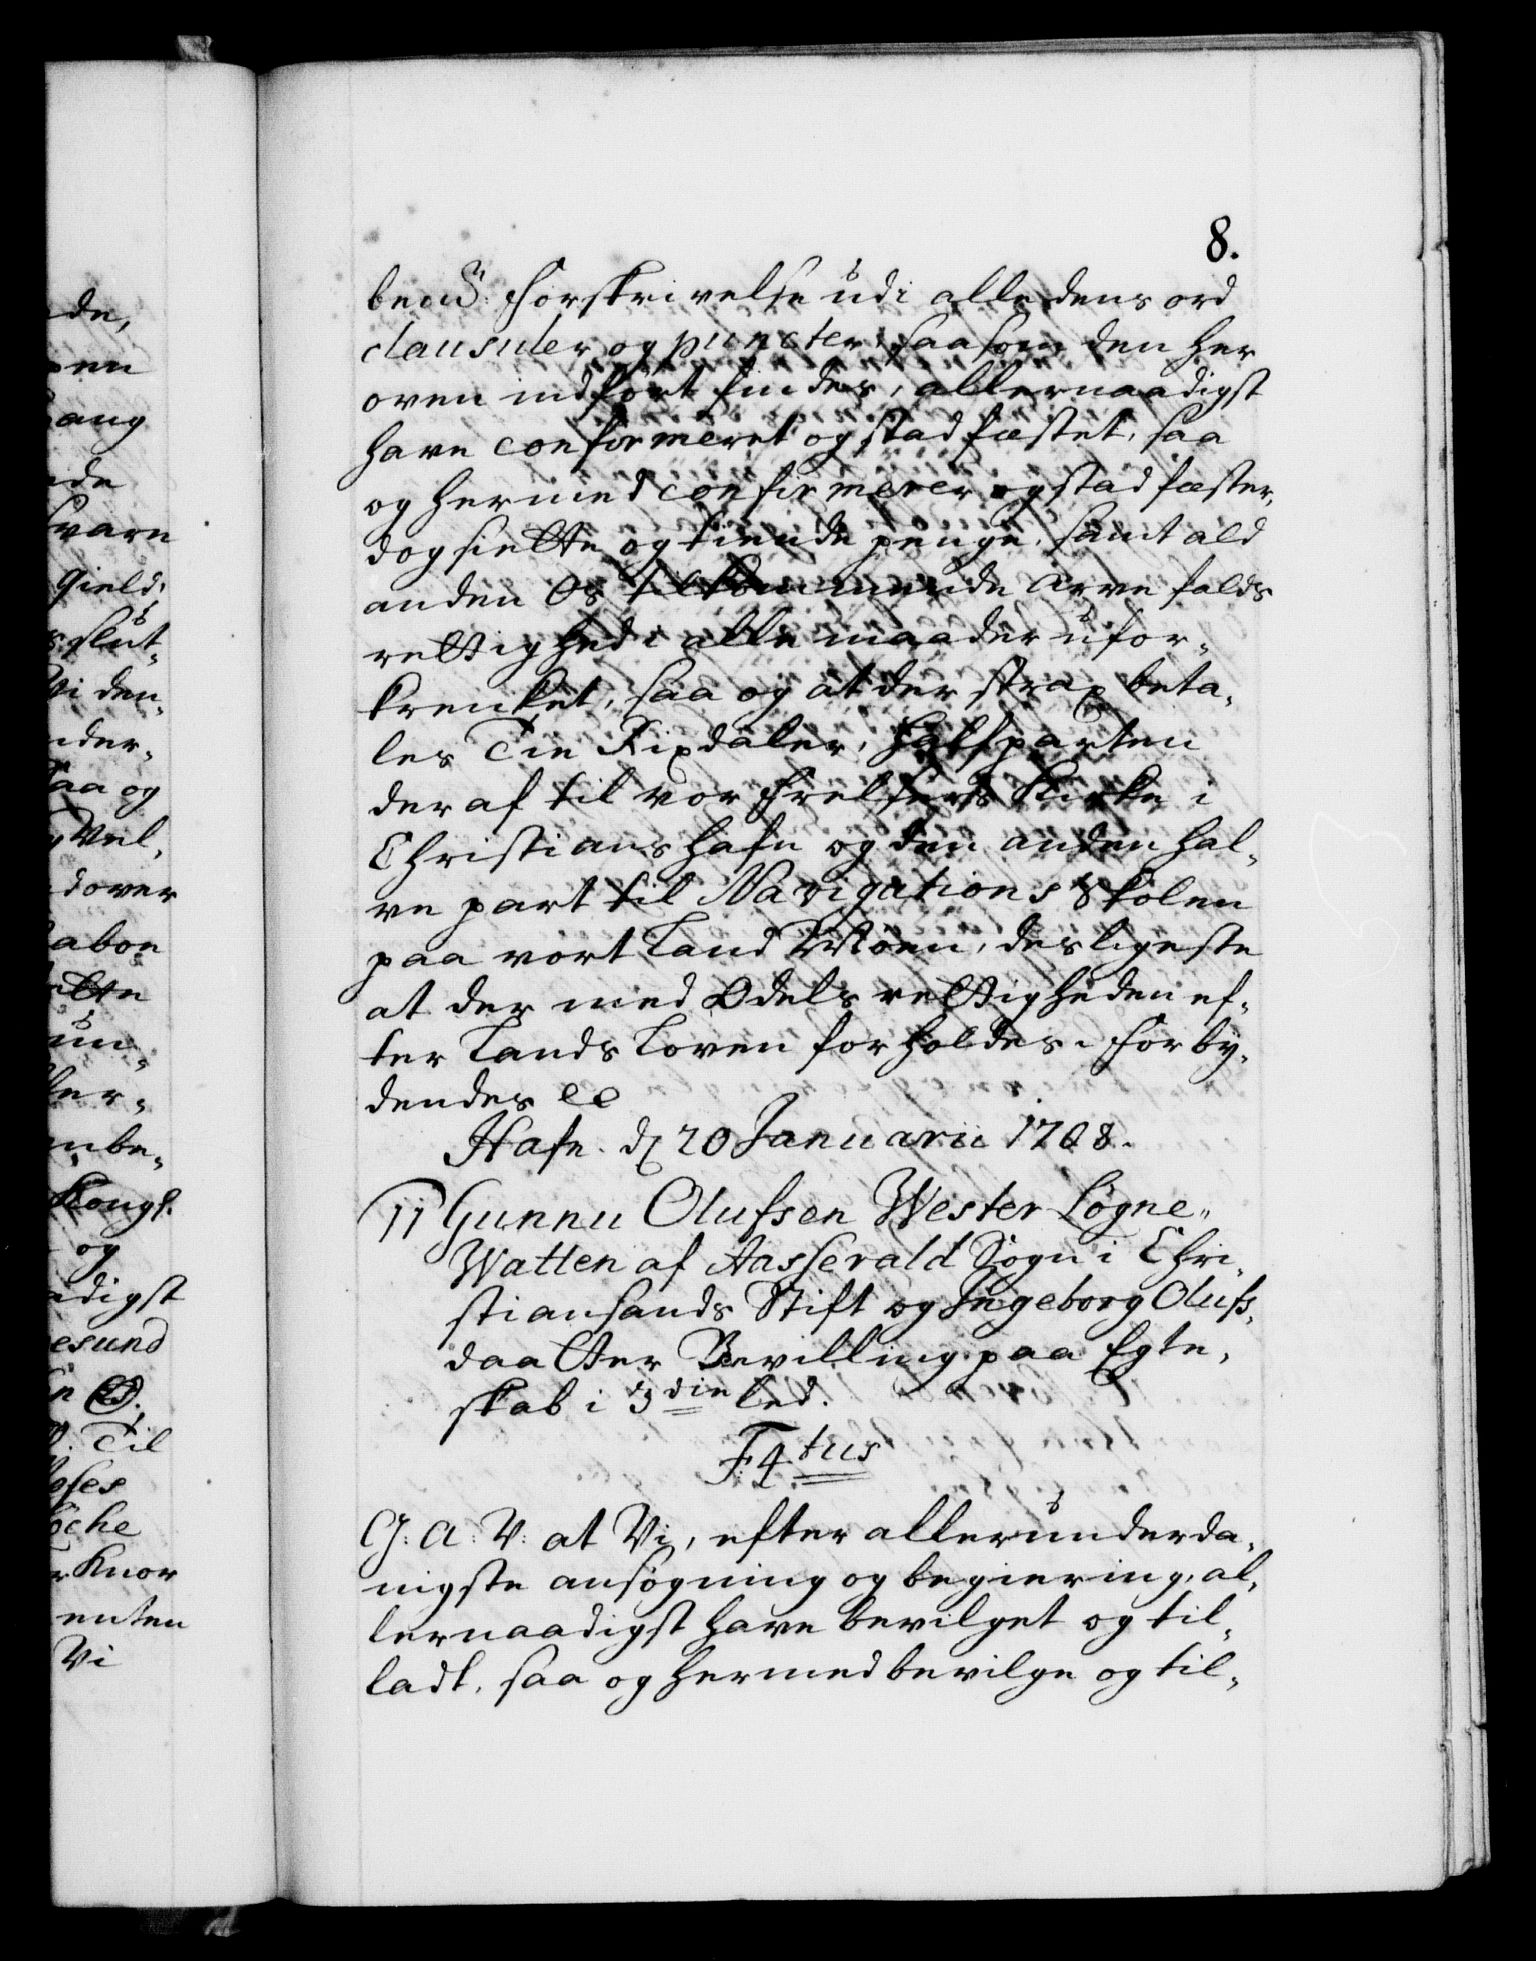 8.
bem.te Forskrivelse udi alle dens ord
clausuler og puncter, saasom den her
oven indført findes, allernaadigst
have confirmeret og stadfæstet, saa
og hermed confirmerer og stadfæster,
dog siette og tiende penge, samt ald
anden Os tilkommende Arve falds
rettighed i alle maader ufor-
krenket, saa og at der strax beta-
les Tie Rixdaler, Halfparten
deraf til vor Frelsers Kirke i
Christianshafn og den anden hal-
ve part til Navigations Skolen
paa vort Land Møen, desligeste
at der med Odels rettigheden ef-
ter Lands Loven forholdes. Forby-
dendes etc
Hafn. d 20 Januarii 1708.
11 Gunnu Olufsen Wester Løgne-
Watten af Aasserald Sogn i Chri-
stiansands Stift og Ingeborg Olufs-
daatter Bevilling paa Egte-
skab i 3die led.
F: 4.tus
G: A: V: at Vi, efter allerunderda-
nigste ansøgning og begiering, al-
lernaadigst have bevilget og til-
ladt, saa og hermed bevilge og til-
de,
pen
gang
nde
svare
gield,
s slut-
Vi den-
nder-
saa og
vel-
dover
abon
ette
un-
ller-
nbe-
Kongl.
og
adigst
esund
Til
öche
Knor
enten
Vi